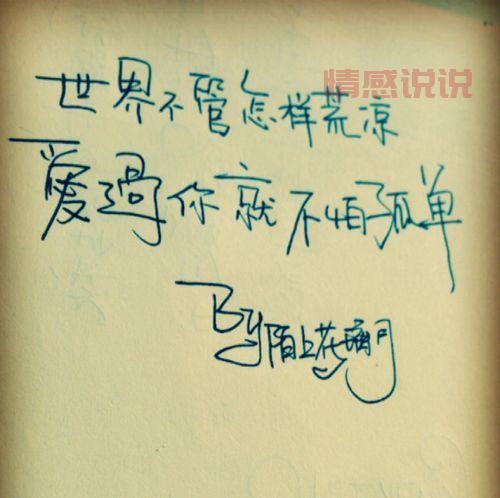 情感说说
世界不管怎样荒凉
爱過你就不怕孤单
By陌上花